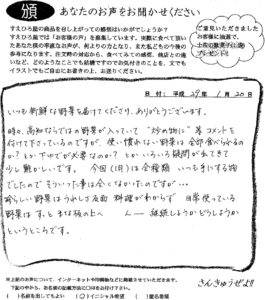 頒 あなたのお声をお聞かせください
すえひろ屋の商品を召し上がっての感想はいかがでしょうか？
すえひろ屋では「お客様の声」を募集しています。実際に食べて頂い
たあなた様の率直なお声が、何よりの力となり、また私どもの今後の
参考になります。注文時の対応から、食べてみての感想、商品との違
いなど、どのようなことでも結構ですのでお聞かせ下さい。文でも
イラストでもご自由にお書きの上、お送りください。
ご意見いただきました
お客様に抽選で、
プレゼント!!
日付：平成 29年 1月 20日
いつも新鮮な野菜を届けてくださり、ありがとうございます。
時々、高知ならではの野菜が入っていて "炒め物に" 等 コメントを
付けて下さっているのですが、使い慣れない野菜は全部食べれるの
か？とか下ゆでが必要なのか？とか いろいろ疑問が出てきて
少し難かしいです。 今回(1月)は全種類 いつも手にする物
でしたので そういった事は全くなかったのですが…
珍らしい野菜はうれしさ反面 料理がわからず 日常使っている
野菜は すっとまな板の上へ んー 継続しようかどうしようか
というところです。
さんきゅうぜよ!!
※上記のお声について、インターネットや印刷物などに掲載させていただきます。
下記の中から、お名前の記載方法に○をお付け下さい。
( )名前を出してもよい (○)イニシャル希望 ( )匿名希望